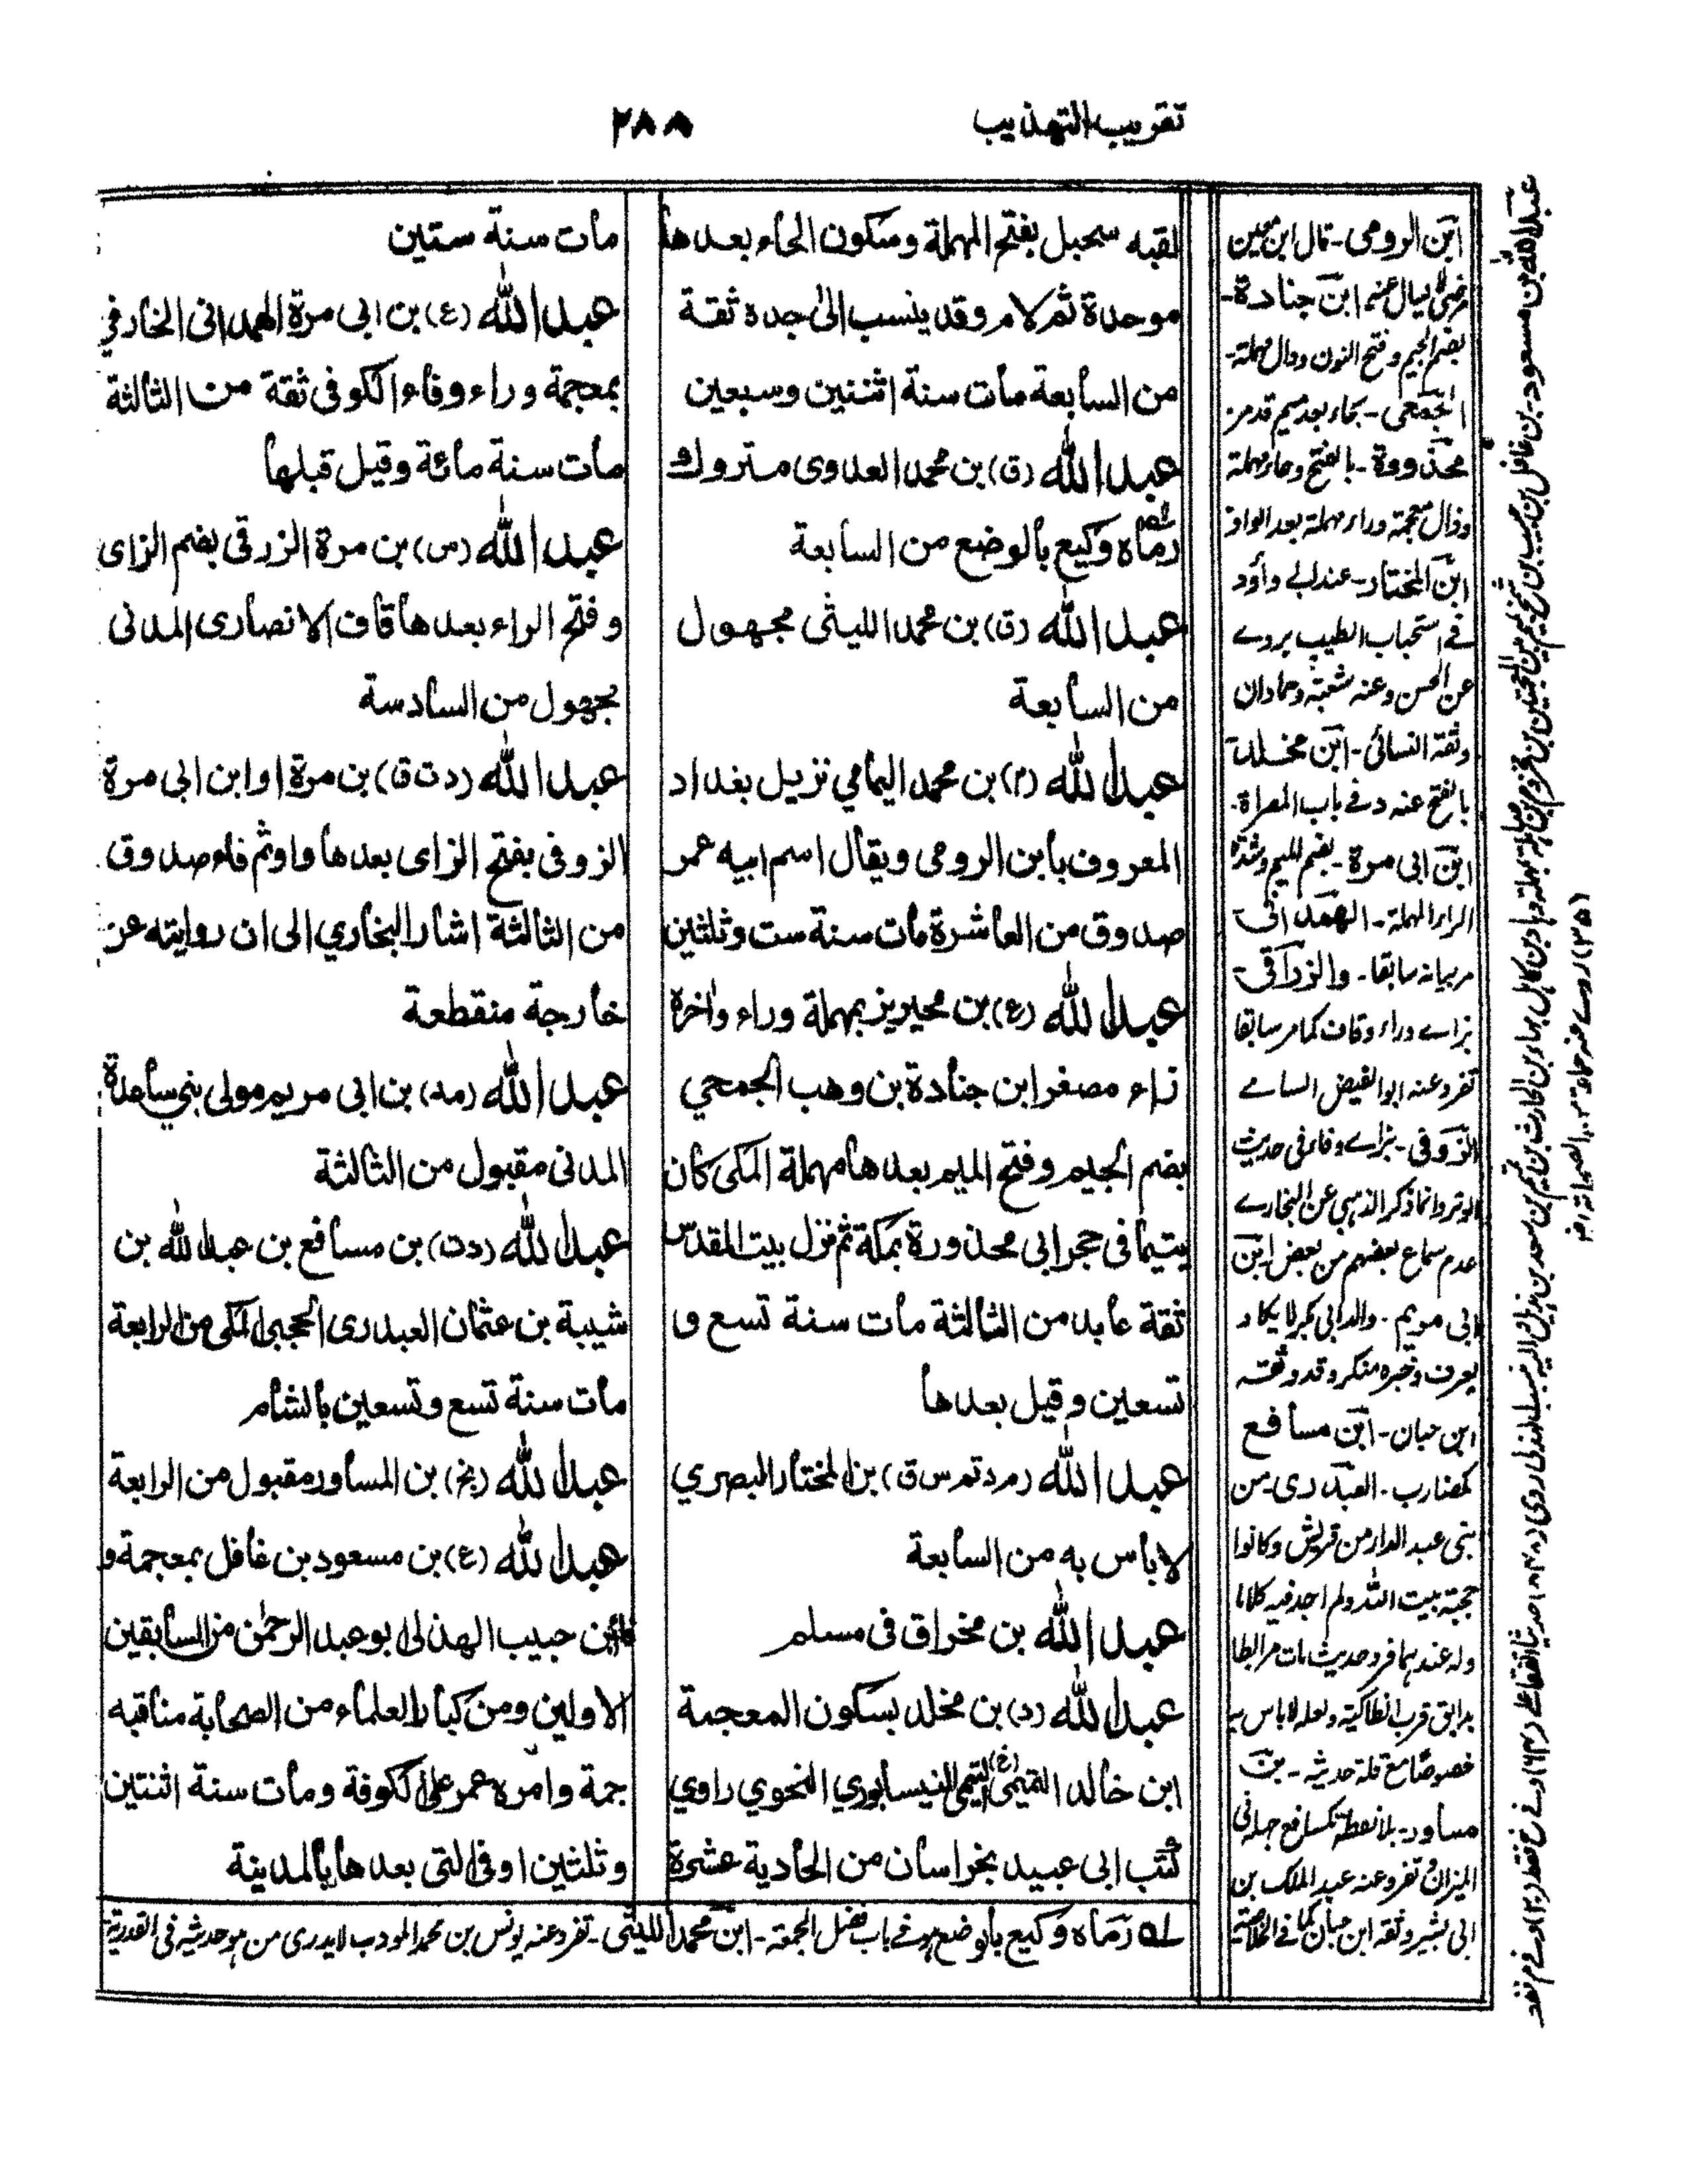 تقريب التهذيب
٢٨٨
لقبه سحبل بفتح المهملة وسكون الحاء بعدها
موحدة ثم لام وقد ينسب الى جده ثقة
من السابعة مات سنة اثنتين وسبعين
عبد الله (ق) بن محمد العدوى متروك
رماه وكيع بالوضع من السابعة
عبد الله (ق) بن محمد الليثى مجهول
من السابعة
عبد الله (م) بن محمد اليمامي نزيل بغداد
المعروف بابن الرومى ويقال اسم ابيه عمر
صدوق من العاشرة مات سنة ست وثلثين
عبد الله (ع) بن محيريز بمهملة وراء واخره
زاء مصغر ابن جنادة بن وهب الجمحي
بضم الجيم وفتح الميم بعدها مهملة المكى كان
يتيما فى حجر ابى محذورة بمكة ثم نزل بيت المقدس
ثقة عابد من الثالثة مات سنة تسع و
تسعين وقيل بعدها
عبد الله (م د تم س ق) بن المختار البصري
لا باس به من السابعة
عبد الله بن مخراق فى مسلم
عبد الله (د) بن مخلد بسكون المعجمة
ابن خالد التميمى التيمى النيسابوري النحوي راوي
كتب ابى عبيد بخراسان من الحادية عشرة
مات سنة ستين
عبد الله (ع) بن ابى مرة الهمدانى الخارفي
بمعجمة وراء وفاء الكوفى ثقة من الثالثة
مات سنة مائة وقيل قبلها
عبد الله (س) بن مرة الزرقى بضم الزاى
وفتح الراء بعدها قاف الانصارى المدنى
مجهول من السادسة
عبد الله (د ت ق) بن مرة او ابن ابى مرة
الزوفى بفتح الزاى بعدها واو ثم فاء صدوق
من الثالثة اشار البخاري الى ان روايته عن
خارجة منقطعة
عبد الله (مد) بن ابى مريم مولى بني ساعدة
المدنى مقبول من الثالثة
عبد الله (د ت) بن مسافع بن عبد الله بن
شيبة بن عثمان العبدرى الحجبى المكى من الرابعة
مات سنة تسع وتسعين بالشام
عبد الله (بخ) بن المساور مقبول من الرابعة
عبد الله (ع) بن مسعود بن غافل بمعجمة و
فاء بن حبيب الهذلى ابو عبد الرحمن من السابقين
الاولين ومن كبار العلماء من الصحابة مناقبه
جمة وامره عمر على الكوفة ومات سنة اثنتين
وثلثين او فى التى بعدها بالمدينة
ابن الرومى - قال ابن معين
ابن جنادة -
بضم الجيم وفتح النون ودال مهملة -
الجمحى - بحاء بعد ميم قد مر
محذورة - بالفتح وحاء مهملة
وذال معجمة وراء مهملة بعد الواو
ابن المختار - عند ابى داؤد
فى استحباب الطيب يروے
عن الحسن وعنه شعبة وحمادان
وثقه النسائى - ابن مخلد -
بالفتح عنه د فى باب المعراة -
ابن ابى مرة - بضم الميم وشدة
الراء المهملة - الهمدانى -
مر بيانه سابقا - والزرقى -
بزاے وراء وقاف كما مر سابقا
تفرد عنه ابو الفيض السامے
الزوفى - بزاے وفاء فى حديث
الوتر وانما ذكر الذهبى عن البخارے
عدم سماع بعضهم من بعض ابن
ابى مريم - والد ابى بكر لا يكاد
يعرف وخبره منكر وقد وثقه
ابن حبان - ابن مسافع
كمضارب - العبدرى - من
بنى عبد الدار من قريش وكانوا
حجبة بيت الله ولم اجد فيه كلاما
بدابق قرب انطاكية ولعله لا باس به
خصوصا مع قلة حديثه - بن
الميزان تفرد عنه عبد الملك بن
ابى بشير وثقه ابن حبان كما فى الخلاصة
له رماه وكيع بالوضع فى باب فضل الجمعة - ابن محمد الليثى - تفرد عنه يونس بن محمد المودب لا يدرى من هو حديثه فى القدرية